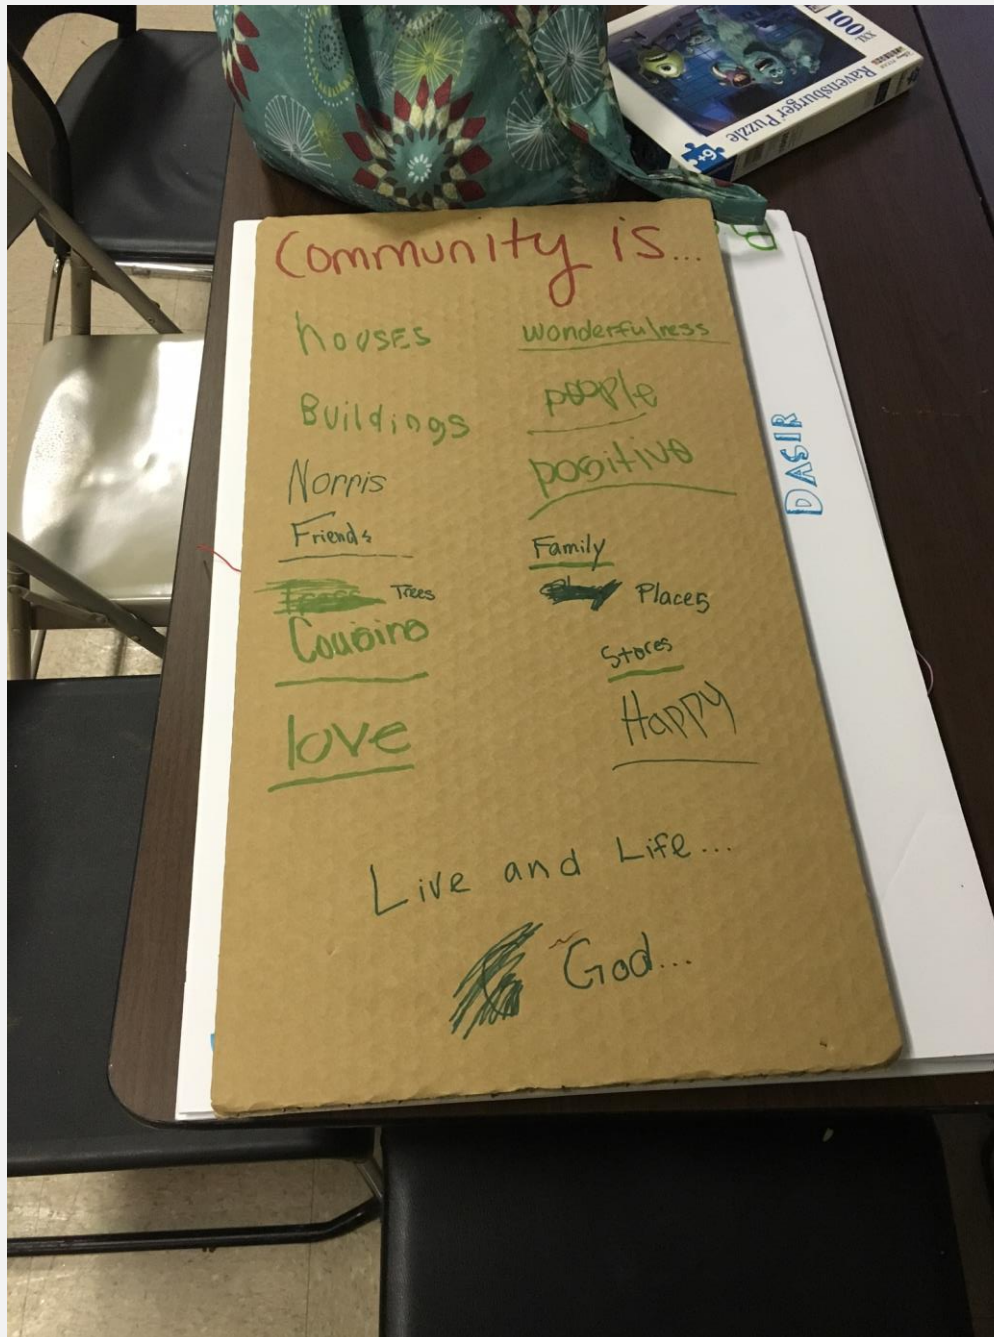 100
XXL
Ravensburger Puzzle
6+
Community is...
houses
Buildings
Norris
Friends
Trees
Cousins
love
wonderfulness
people
positive
Family
Places
Stores
Happy
Live and Life...
God...
DASIR